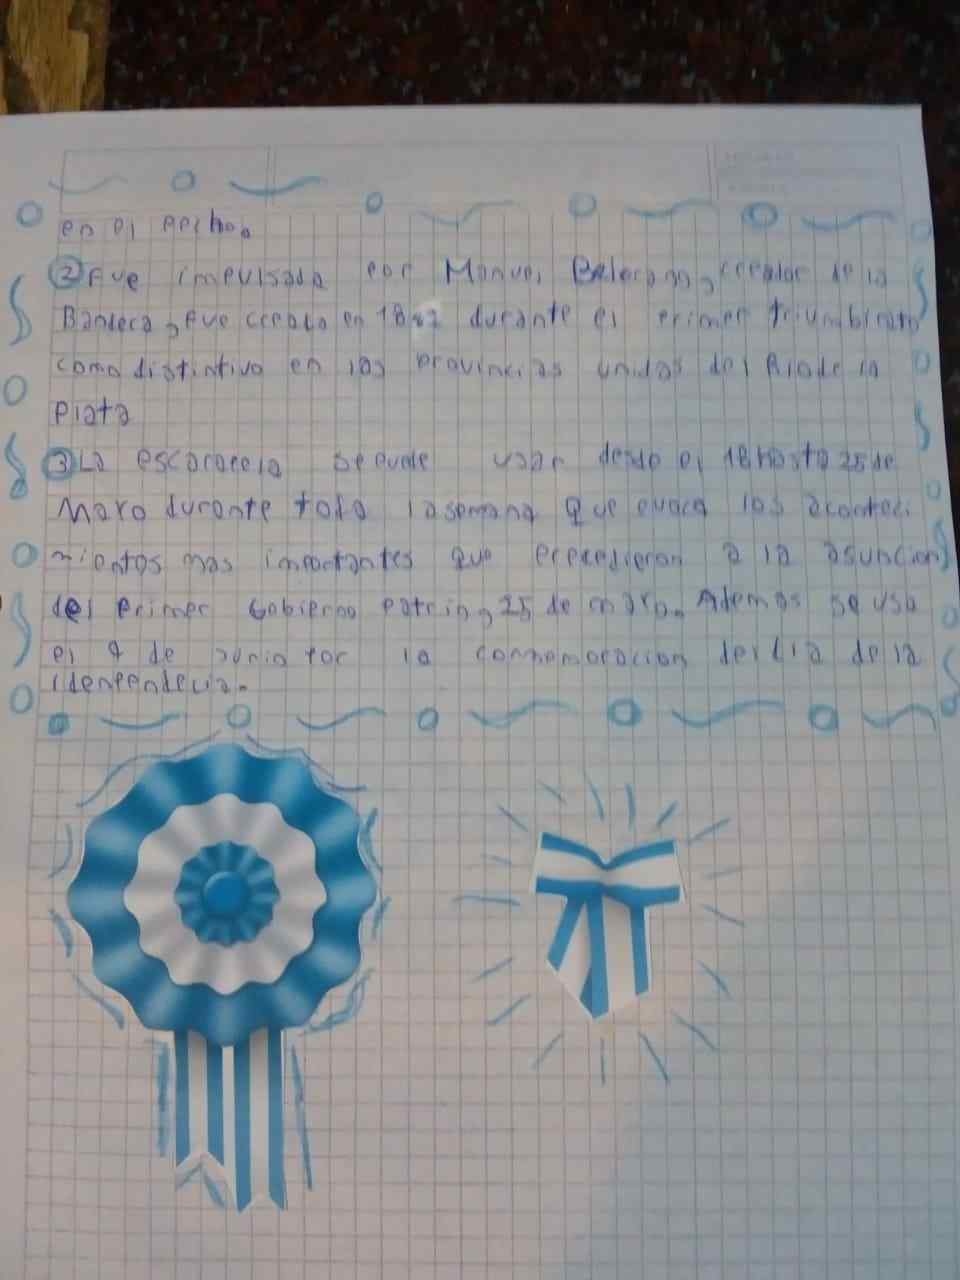 en el pecho.
② Fue impulsada por Manuel Belgrano, creador de la
Bandera, fue creado en 1812 durante el primer triumbirato
como distintivo en las provincias unidas del Rio de la
Plata
③ La escarapela se puede usar desde el 18 hasta 25 de
Mayo durante toda la semana que evoca los aconteci
mientos mas importantes que precedieron a la asuncion
del primer Gobierno patrio, 25 de mayo. Ademas se usa
el 9 de Junio por la conmemoracion del dia de la
Idenpendecia.